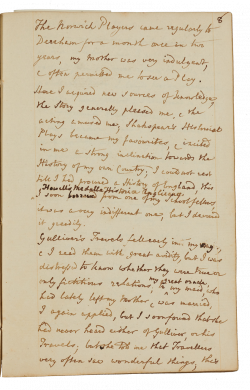 8
The Norwich Players came regularly to
Dereham for a month once in two
years, my Mother was very indulgent,
& often permitted me to see a Play.
Here I acquired new sources of knowledge,
the Story generally pleased me, & the
acting amused me; Shakespear's Historical
Plays became my favourites, & excited
in me a strong inclination towards the
History of my own Country; I could not rest
till I had procured a History of England, this
I soon borrowed from one of my School fellows,
it was a very indifferent one, but I devoured
it greedily.
Gulliver's Travels fell early in my way,
& I read them with great avidity, but I was
distress'd to know whether they were true or
only fictitious relations, my great oracle
my maid who
had lately left my Mother, & was married,
I again applied, but I soon found that she
had never heard either of Gulliver or his
Travels, but she told me that Travellers
very often saw wonderful things, this